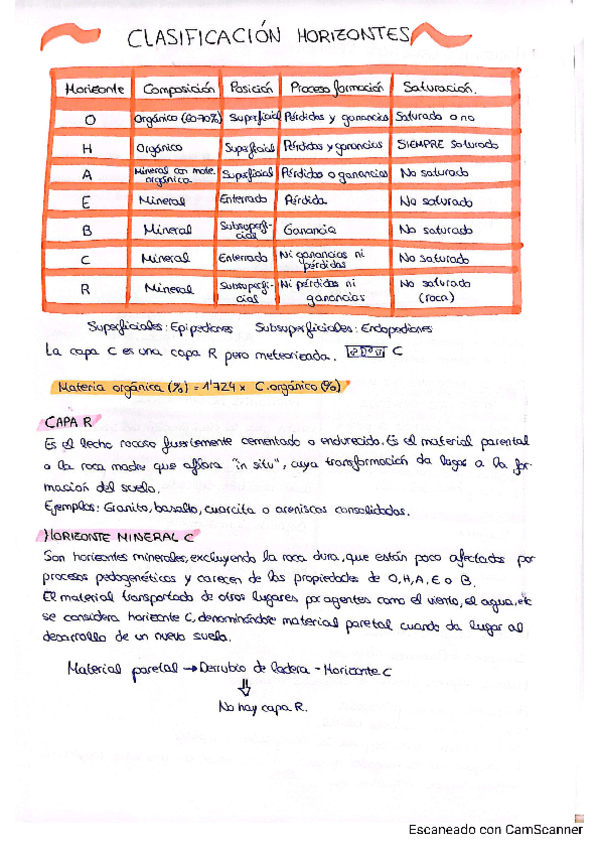 CLASIFICACIÓN HORIZONTES
Horizonte Composición Posición Proceso formación Saturación.
O Orgánico (60-70%) Superficial Pérdidas y ganancias Saturado o no
H Orgánico Superficial Pérdidas y ganancias SIEMPRE saturado
A Mineral con mate. orgánica Superficial Pérdidas o ganancias No saturado
E Mineral Enterrado Pérdida No saturado
B Mineral Subsuperficial Ganancia No saturado
C Mineral Enterrado Ni ganancias ni pérdidas No saturado
R Mineral Subsuperficial Ni pérdidas ni ganancias No saturado (roca)
Superficiales: Epipediones Subsuperficiales: Endopediones
La capa C es una capa R pero meteorizada. C
Materia orgánica (%) = 1'724 x C.orgánico (%)
CAPA R
Es el lecho rocoso fuertemente cementado o endurecido. Es el material parental
o la roca madre que aflora "in situ", cuya transformación da lugar a la for-
mación del suelo.
Ejemplos: Granito, basalto, cuarcita o areniscas consolidadas.
HORIZONTE MINERAL C
Son horizontes minerales, excluyendo la roca dura, que están poco afectados por
procesos pedogenéticos y carecen de las propiedades de O, H, A, E o B.
El material transportado de otros lugares por agentes como el viento, el agua, etc
se considera horizonte C, denominándose material paretal cuando da lugar al
desarrollo de un nuevo suelo.
Material paretal → Derrubio de ladera - Horizonte C
⇓
No hay capa R.
Escaneado con CamScanner